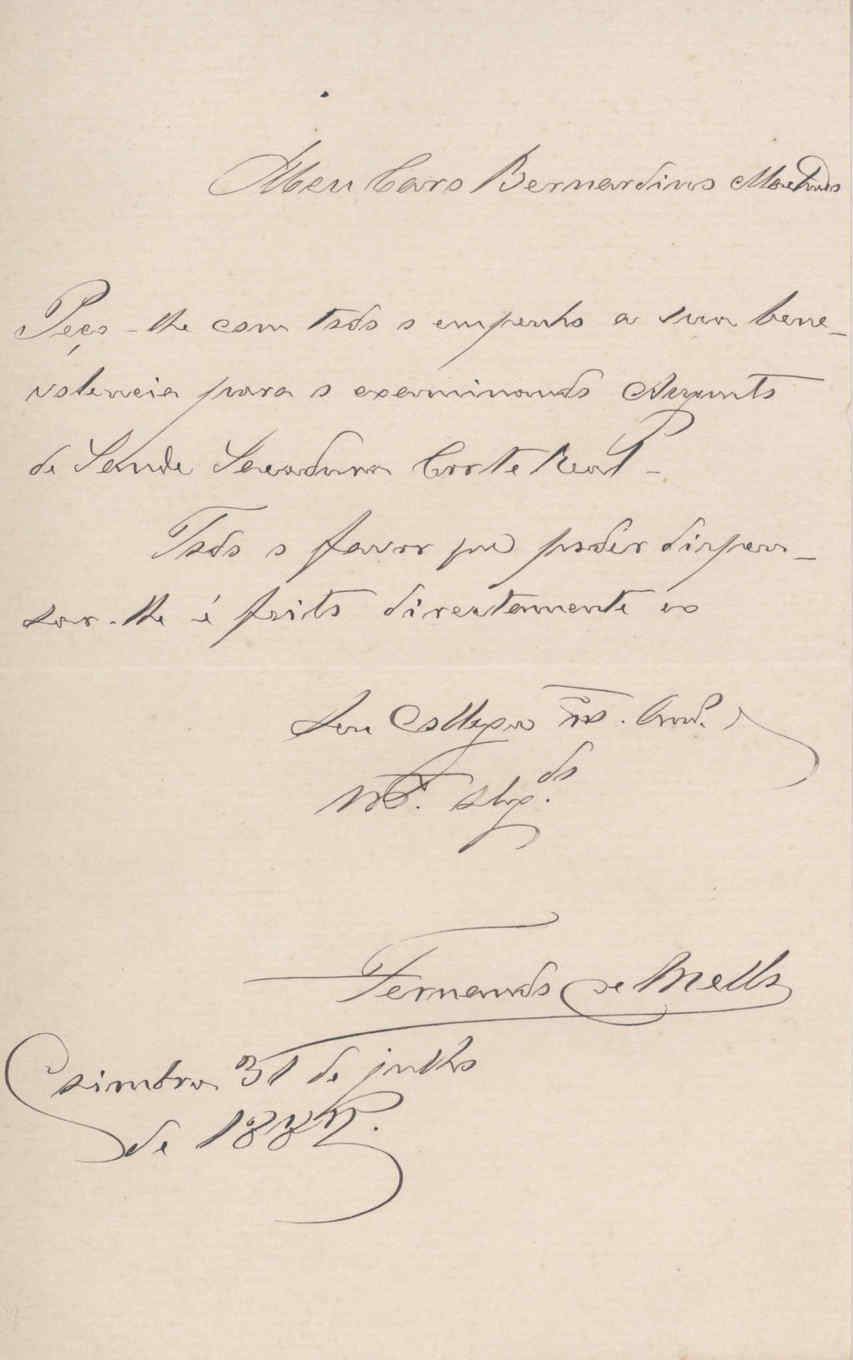 Meu Caro Bernardino Machado
Peço-lhe com todo o empenho a sua bene-
volencia para o examinando Augusto
de Saude Sacadura Corte Real -
Todo o favor que poder dispen-
sar-lhe é feito directamente ao
Seu Collega Am.
M.to Obg.do
Fernando de Mello
Coimbra 31 de julho
de 188